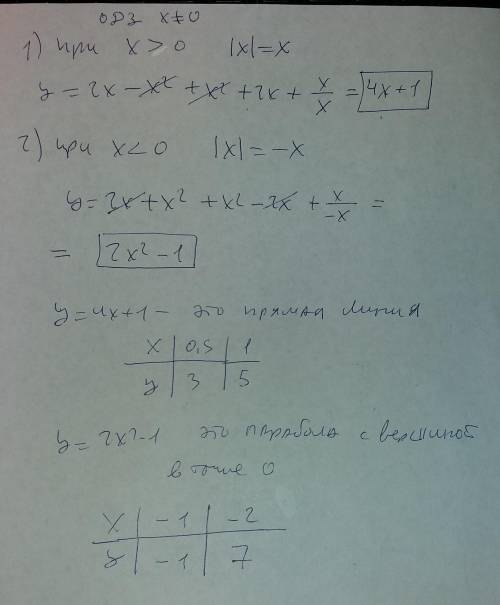 ОДЗ x≠0
1) при x > 0 |x| = x
y = 2x - x² + x² + 2x + x/x = 4x+1
2) при x < 0 |x| = -x
y = 2x + x² + x² - 2x + x/-x =
= 2x² - 1
y = 4x+1 - это прямая линия
x | 0,5 | 1
y | 3 | 5
y = 2x² - 1 это парабола с вершиной
в точке 0
x | -1 | -2
y | -1 | 7